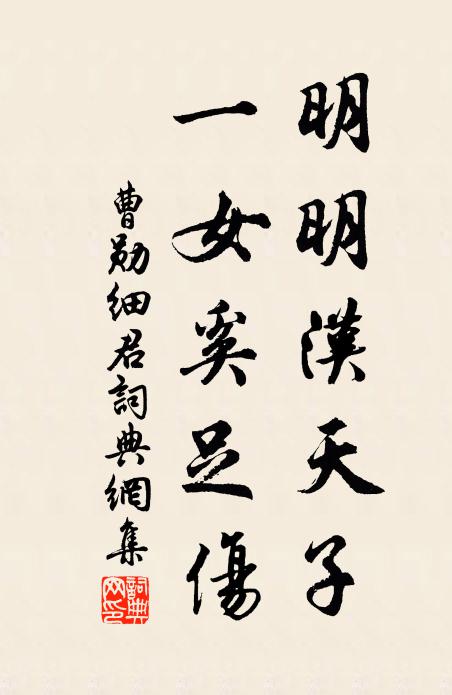 明明漢天子
一女奚足傷
曹勛細君詞典網集
詞典網印